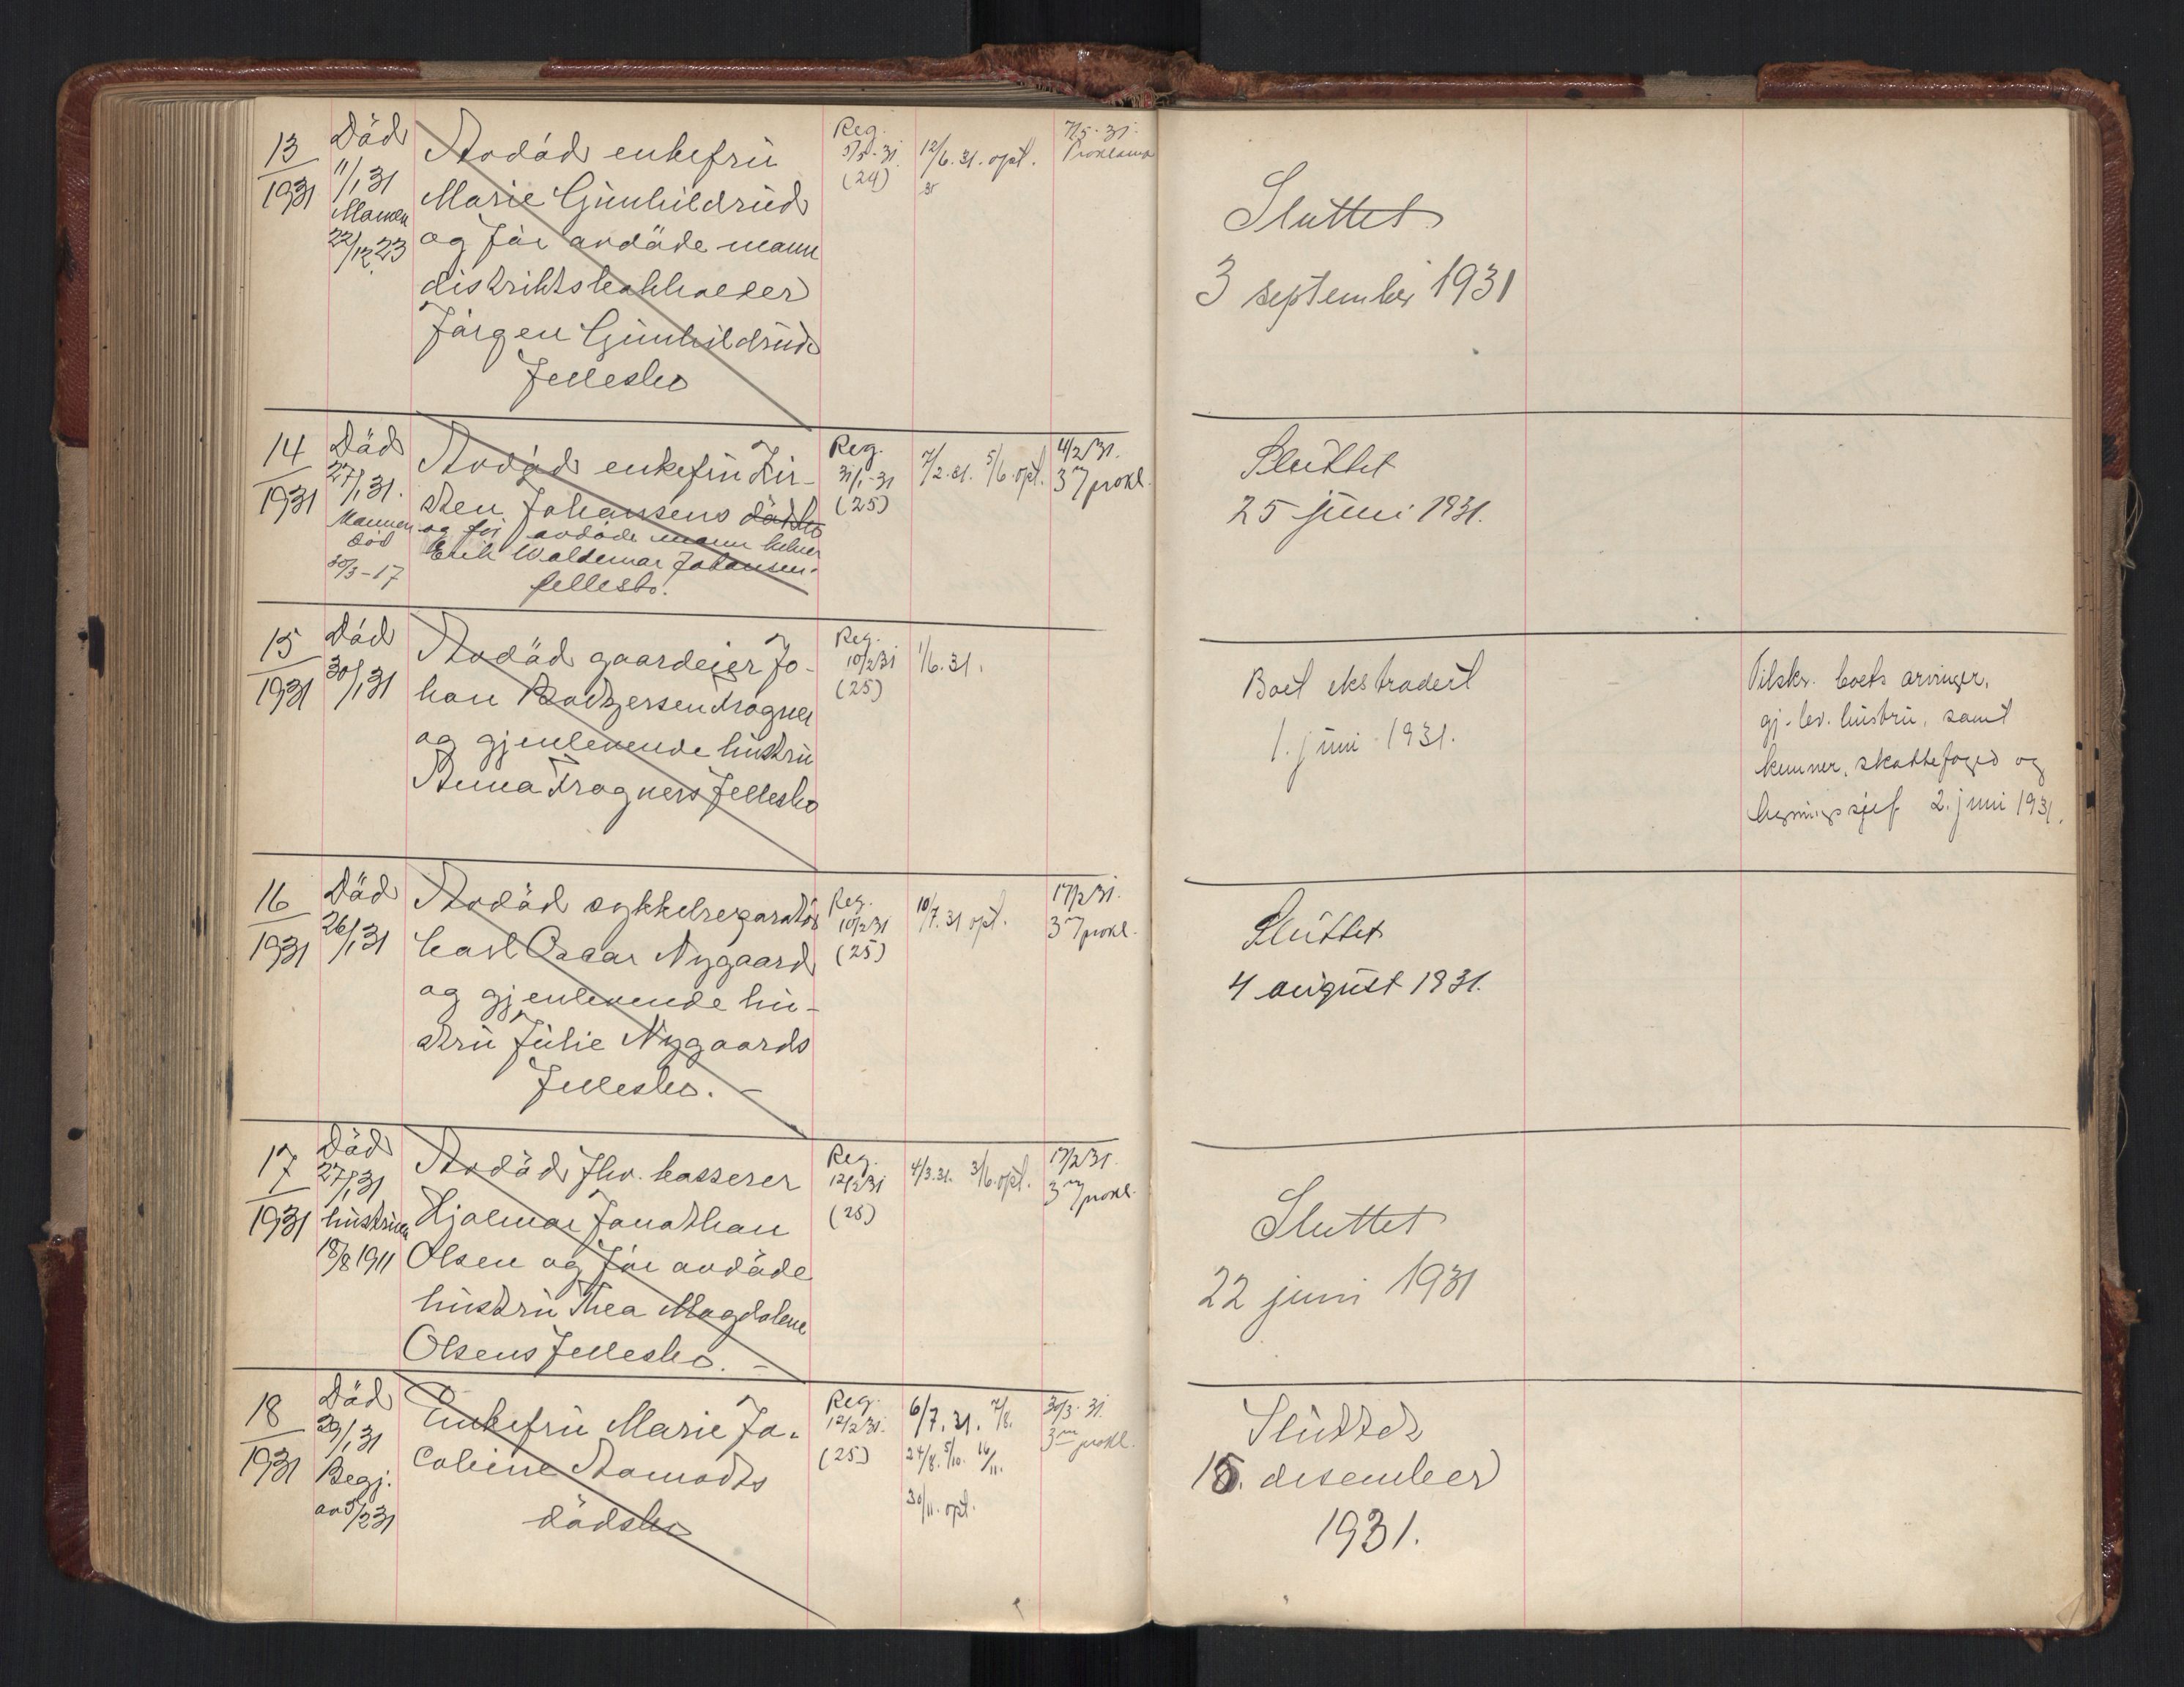 13
1931
Död
11/1 31
Mannen
22/12 23
Avdöd enkefrü
Marie Günhildrüd
og för avdöde mann
Jörgen Günhildrüds
fellesbo
Reg.
5/5-31
(24)
12/6. 31. opt.
7/5-31.
Proklama
Sluttet
3 september 1931
14
1931
Död
27/1 31.
Mannen
död
30/3-17
Avdöd enkefrü Kir-
sten Johansens dödsbo
og för avdöde mann
Erik Waldemar Johansens
fellesbo.
Reg.
31/1-31
(25)
7/2.31. 5/6. opt.
4/2 31.
3 m/ prokl.
Slüttet
25 jüni 1931.
15
1931
Död
30/1 31
Avdöd gaardeier Jo-
han
og gjenlevende hüstrü
Anna Frogners fellesbo
Reg.
10/2 31
(25)
1/6. 31.
Boet ekstradert
1. jüni 1931.
Tilskr. boets arvinger,
gj. lev. hüstrü, samt
kemner, skattefoged og
2. juni 1931.
16
1931
Död
26/1 31
Avdöd sykkelreparatör
Carl Oscar Nygaard
og gjenlevende hü-
strü Jülie Nygaards
fellesbo. –
Reg.
10/2 31
(25)
10/7. 31 opt.
17/2 31.
3 m/ prokl.
Slüttet
4 august 1931.
17
1931
Död
27/1 31
hüstrüen
18/8 1911
Avdöd fhv. kasserer
Hjalmar Jonathan
Olsen og för avdöde
hüstrü Thea Magdalene
Olsens fellesbo. –
Reg.
12/2 31
(25)
4/3.31. 3/6. opt.
13/2 31.
3 m/ prokl.
Sluttet
22 juni 1931
18
1931
Död
29/1 31
Begj.
av 5/2 31
Enkefrü Marie Ja-
cobine Aamodts
dödsbo
Reg.
12/2 31.
(25)
6/7. 31. 7/8.
24/8. 5/10. 16/11.
30/11. opt.
30/3. 31.
3 m prokl.
Slüttet
15. desember
1931.